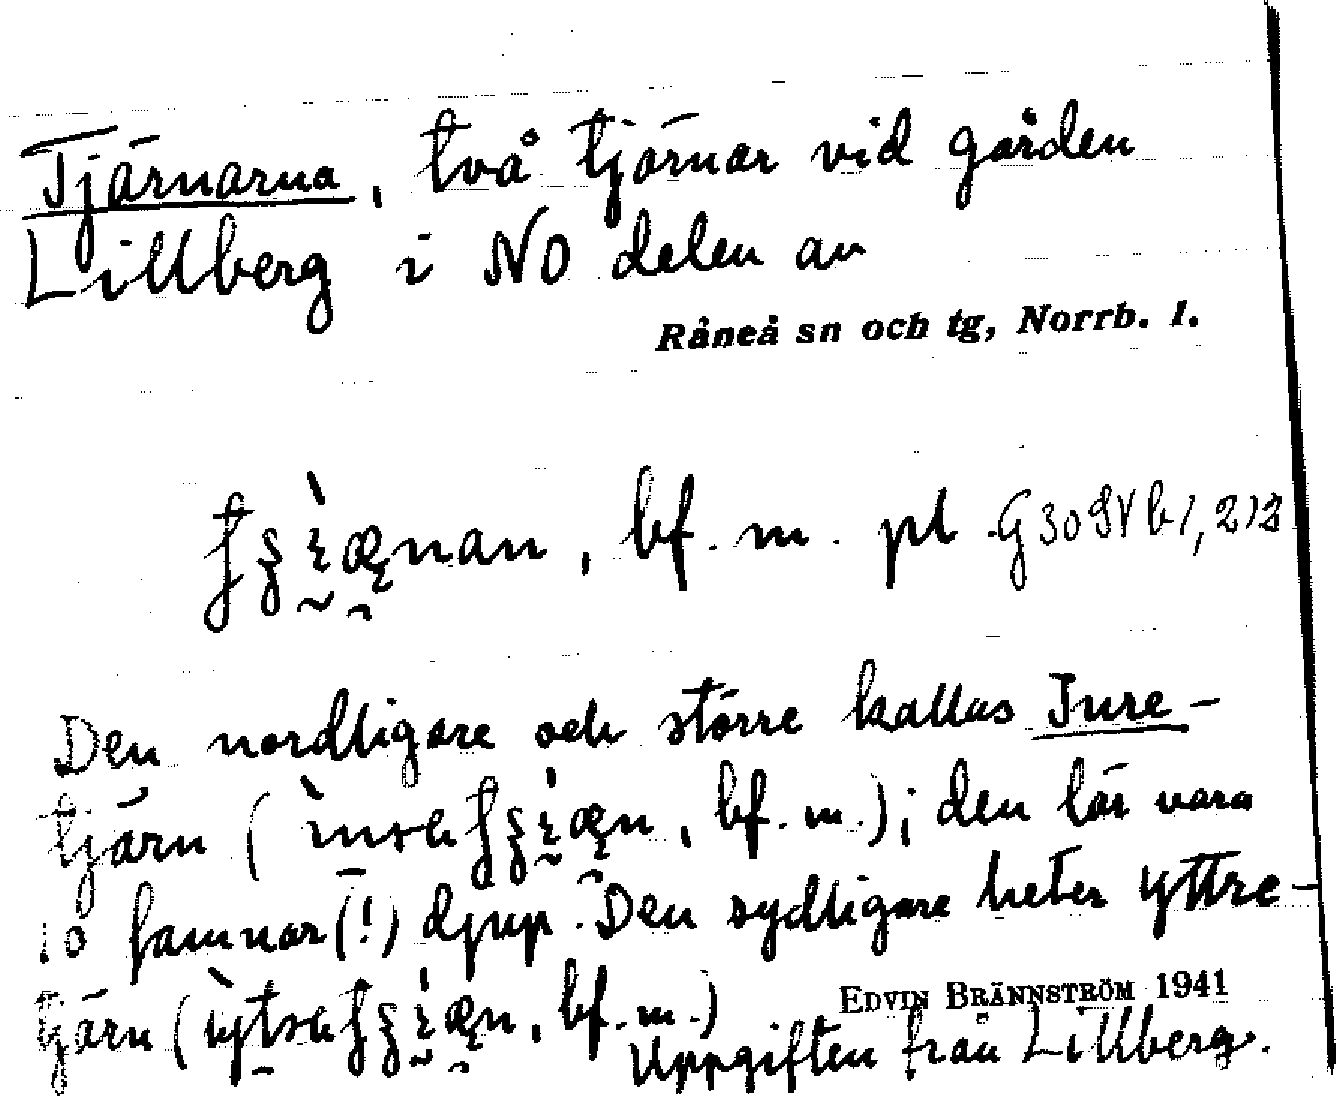 Tjärnarna, två tjärnar vid gården
Lillberg i NO delen av
Råneå sn och tg, Norrb. l.
bf. m. pl. G30SVb1, 2/3
Den nordligare och större kallas Inre-
tjärn ( , bf. m.); den lär vara
10 famnar(!) djup. Den sydligare heter Yttre-
tjärn ( , bf. m.)
EDVIN BRÄNNSTRÖM 1941
Uppgiften från Lillberg.